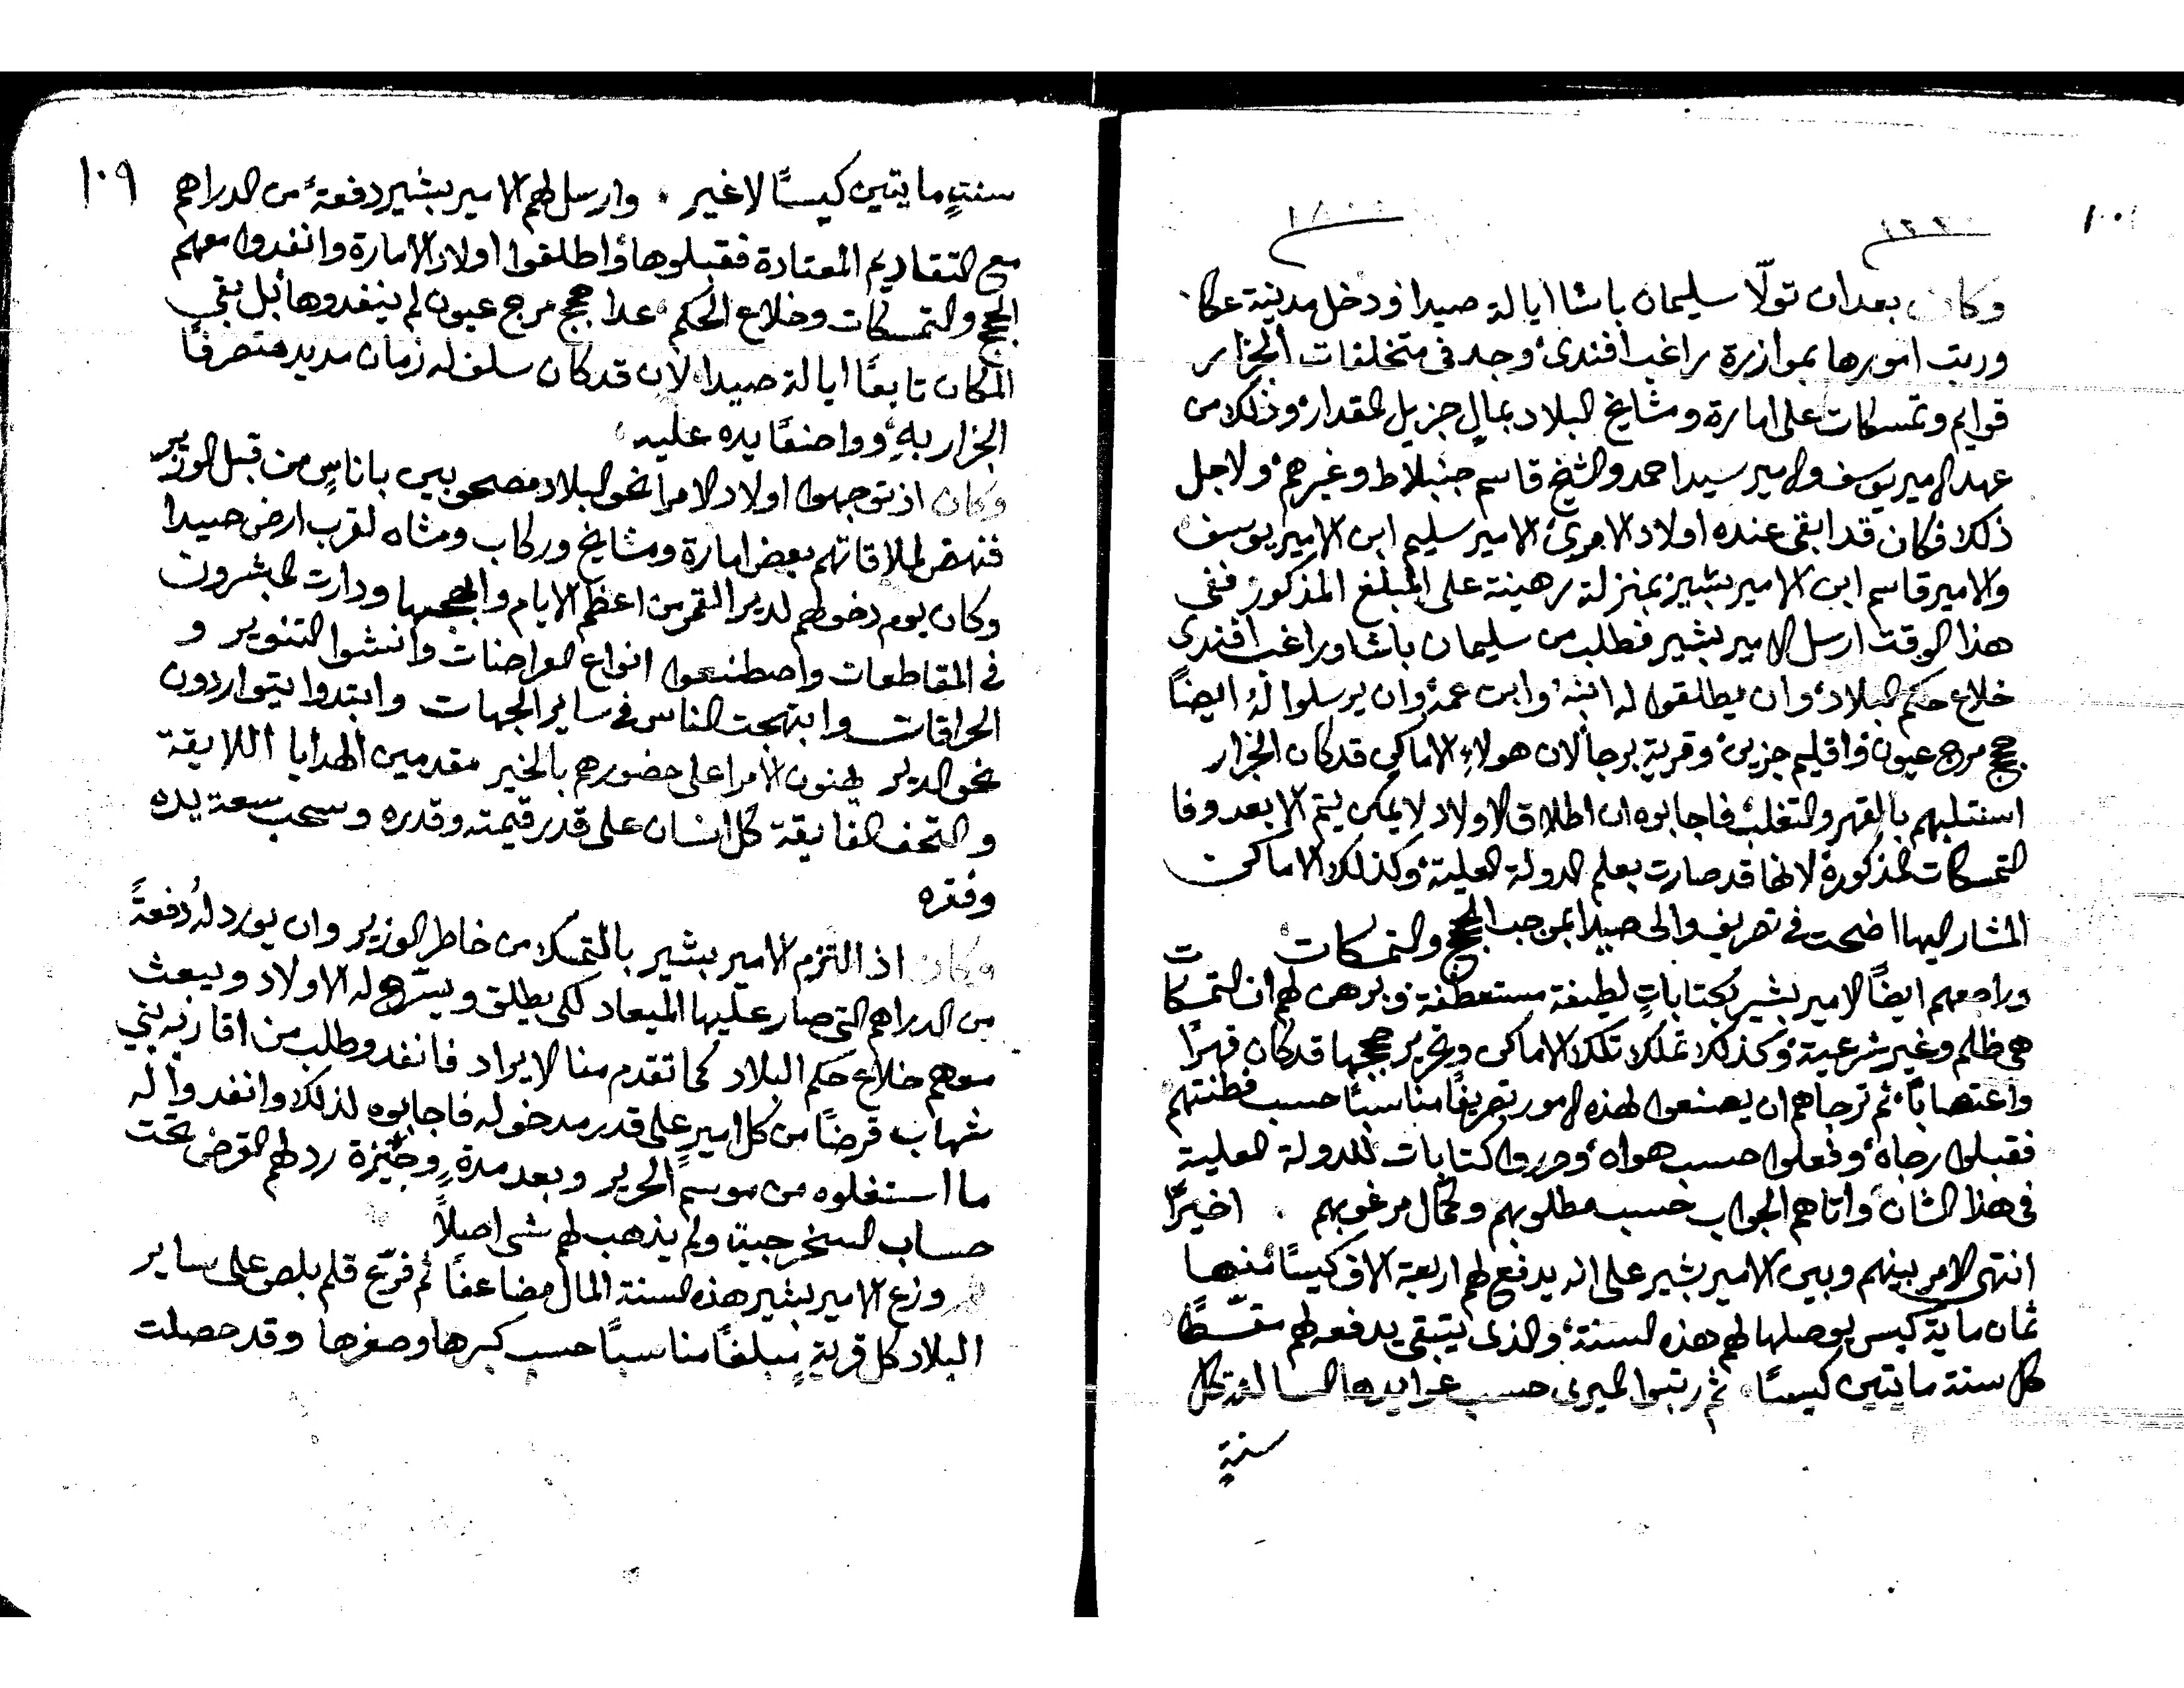 وكان بعدان تولّا سليمان باشا ايالة صيدا ودخل مدينة عكا
وربت امورها بموازرة راغب افندي وجد في متخلفات الجزار
قوايم وتمسكات على امارة ومشايخ البلاد بمالٍ جزيل المقدار وذلك من
عهد الامير يوسف والامير سيد احمد والشيخ قاسم جنبلاط وغيرهم ولاجل
ذلك فكان قد ابقى عنده اولاد الامرئ الامير سليم ابن الامير يوسف
والامير قاسم ابن الامير بشير بمنزلة رهينة على المبلغ المذكور ففي
هذا الوقت ارسل الامير بشير فطلب من سليمان باشا وراغب افندي
خلاع حكم البلاد وان يطلقوا له ابنه وابن عمه وان يرسلوا له ايضاً
حجج مرج عيون واقليم جزين وقرية برجا لان هولاءِ الاماكن قد كان الجزار
استلبهم بالقهر والتغلب فاجابوه ان اطلاق الاولاد لا يمكن يتم الا بعد وفا
التمسكات المذكورة لانها قد صارت بعلم الدولة العلية وكذلك الاماكن
المشار اليها اضحت في تصريف والى صيدا بموجب الحجج والتمسكات
وراجعهم ايضاً الامير بشير بكتاباتٍ لطيفة مستعطفة وبرهن لهم ان التمسكات
هي ظلم وغير شرعية وكذلك تملك تلك الاماكن وتحرير حججها قد كان قهراً
واغتصاباً ثم ترجاهم ان يصنعوا لهذه الامور تصريفاً مناسباً حسب فطنتهم
فقبلوا رجاه وفعلوا حسب هواه وحرروا كتابات للدولة العلية
في هذا الشان واتاهم الجواب حسب مطلوبهم وكمال مرغوبهم . اخيراً
انتهى الامر بينهم وبين الامير بشير على انه يدفع لهم اربعة الاف كيساً منها
ثمان ماية كيس يوصلها لهم هذه السنة والذي يتبقى يدفعه لهم مقسطاً
كل سنة مايتين كيساً . ثم رتبوا الميرى حسب عوايدها السالفة كل
سنةٍ
١٠٩
سنةٍ مايتين كيساً لا غير . وارسل لهم الامير بشير دفعة من الدراهم
مع التقاديم المعتادة فقبلوها واطلقوا اولاد الامارة وانفدوا معهم
الحجج والتمسكات وخلاع الحكم عدا حجج مرج عيون لم ينفدوها بل بقى
المكان تابعاً ايالة صيدا لان قد كان سلف له زمان مديد متصرفاً
الجزار به وواضعاً يده عليه
وكان اذ توجهوا اولاد الامرا نحو البلاد مصحوبين باناسٍ من قبل الوزير
فنهض لملاقاتهم بعض امارة ومشايخ وركاب ومشاه لقرب ارض صيدا
وكان يوم دخولهم لدير القمر من اعظم الايام وابهجها ودارت المبشرون
في المقاطعات واصطنعوا انواع العراضات وانشوا التنوير و
الحراقات وابتهجت الناس في ساير الجهات وابتدوا يتواردون
نحو الدير يهنون الامرا على حضورهم بالخير مقدمين الهدايا اللايقة
والتحف الفايقة كل انسان على قدر قيمته وقدره وحسب سعة يده
وفقره
وكان اذ التزم الامير بشير بالتمسك من خاطر الوزير وان يورد له دفعةً
من الدراهم التي صار عليها الميعاد لكى يطلق ويسرح له الاولاد ويبعث
معهم خلاع حكم البلاد كما تقدم منا الايراد فانفد وطلب من اقاربه بني
شهاب قرضاً من كل اميرٍ على قدر مدخوله فاجابوه لذلك وانفدوا له
ما استغلوه من موسم الحرير وبعد مدةٍ وجيزة رد لهم القرض تحت
حساب السخرجية ولم يذهب لهم شى اصلاً
وزع الامير بشير هذه السنة المال مضاعفاً ثم فرّع قلم بلص على ساير
البلاد كل قريةٍ مبلغاً مناسباً حسب كبرها وصغرها وقد حصلت